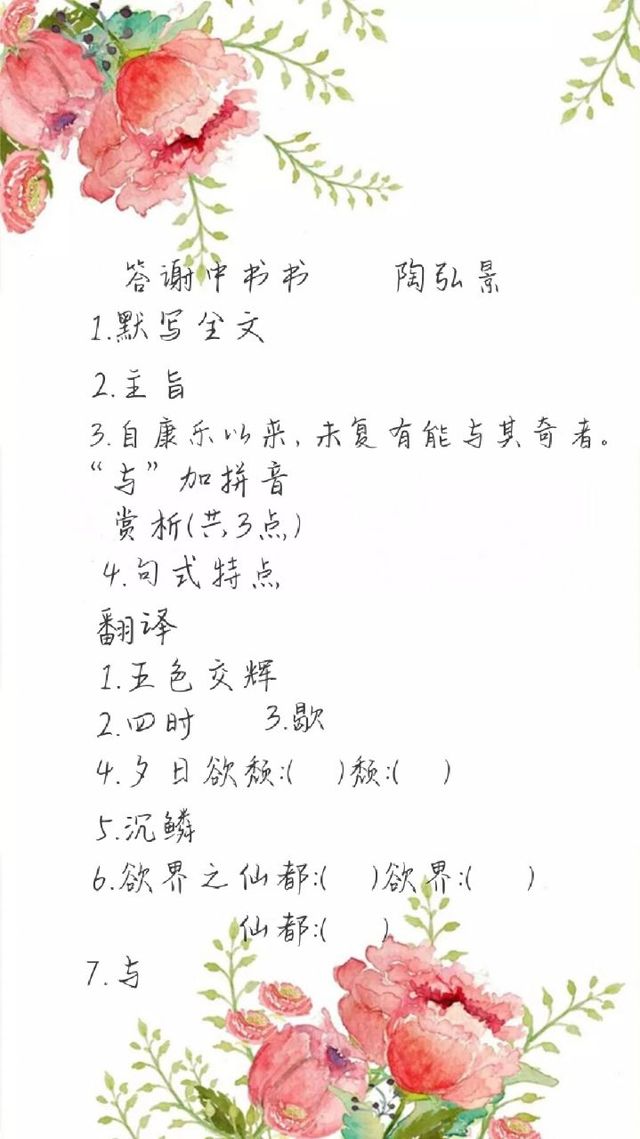 答谢中书书 陶弘景
1.默写全文
2.主旨
3.自康乐以来,未复有能与其奇者。
“与”加拼音
赏析(共3点)
4.句式特点
翻译
1.五色交辉
2.四时 3.歇
4.夕日欲颓:( )颓:( )
5.沉鳞
6.欲界之仙都:( )欲界:( )
仙都:( )
7.与